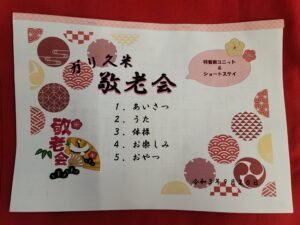 敬老会
特養南ユニット
&
ショートステイ
1. あいさつ
2. うた
3. 体操
4. お楽しみ
5. おやつ
敬老会